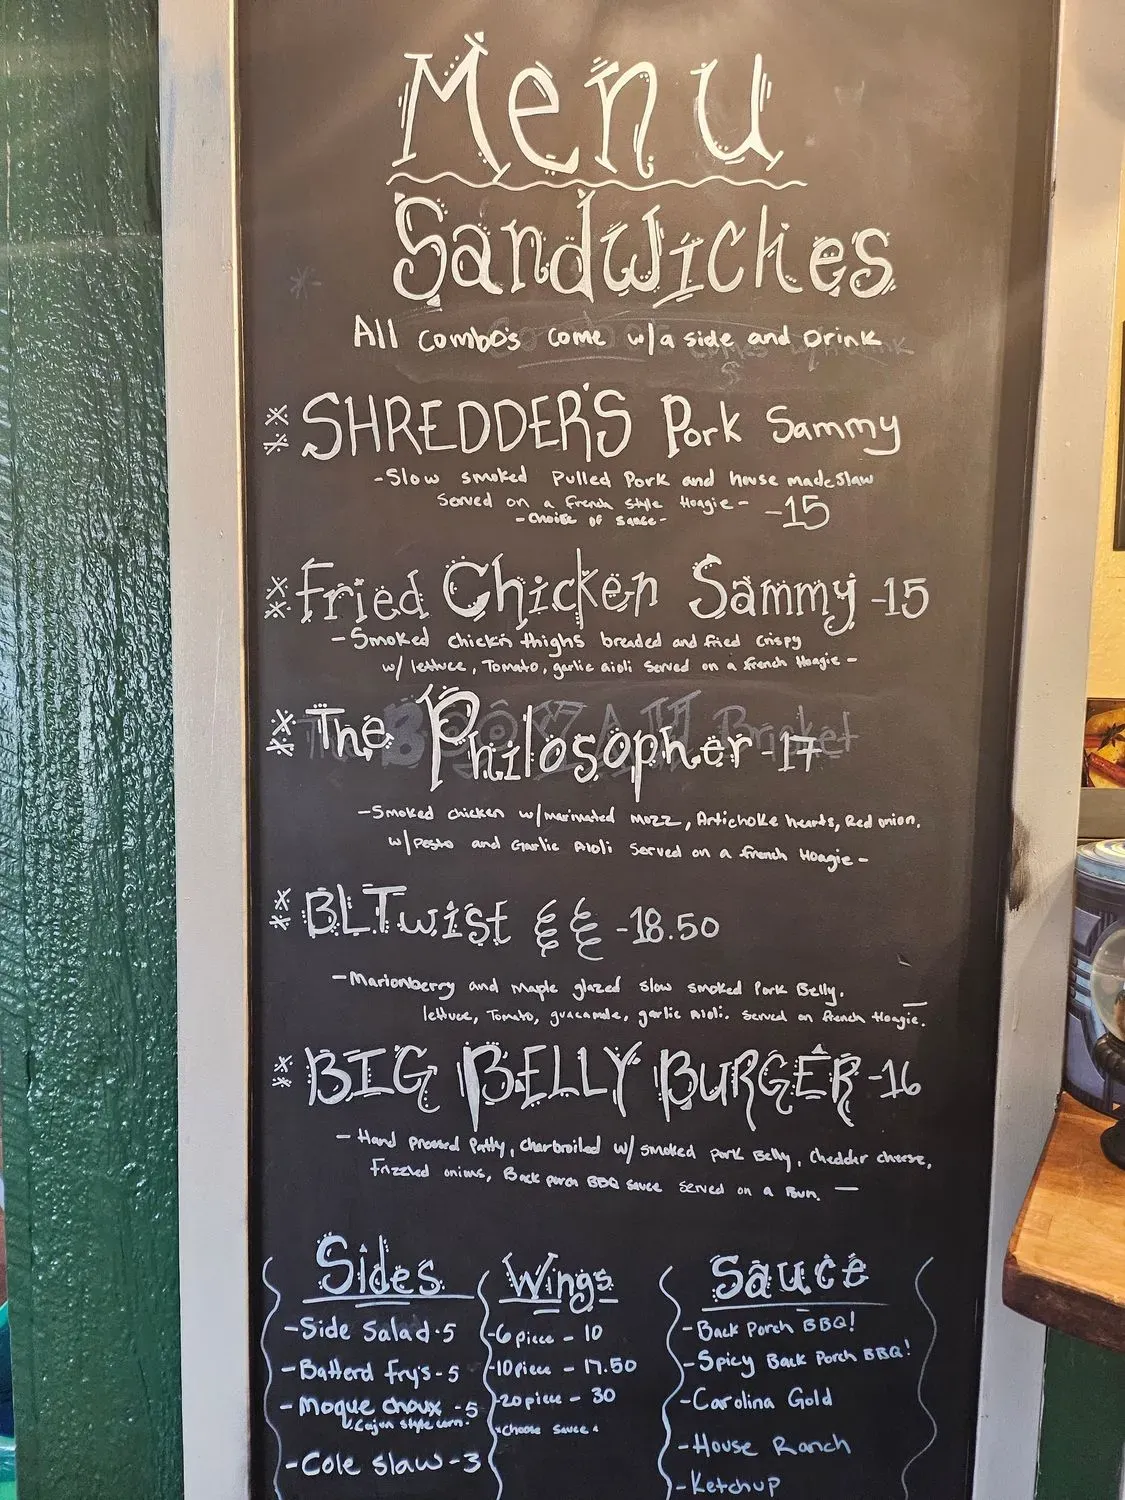 Menu
Sandwiches
All Combo's Come w/a side and Drink
SHREDDER'S Pork Sammy
-Slow smoked Pulled Pork and house made slaw
Served on a french style Hoagie-
-15
-Choise of sauce-
Fried Chicken Sammy -15
-Smoked chickn thighs breaded and fried Crispy
w/ lettuce, Tomato, garlic aioli Served on a french Hoagie-
The Philosopher -17
-Smoked chicken w/marinated mozz, Artichoke hearts, Red onion,
w/Pesto and Garlic Aioli Served on a french Hoagie-
BLTwist -18.50
-Marionberry and maple glazed slow smoked Pork Belly.
lettuce, Tomato, guacamole, garlic Aioli. Served on french Hoagie.
BIG BELLY BURGER -16
- Hand pressed Patty, charbroiled w/ smoked pork Belly, Cheddar cheese,
frizzled onions, Back porch BBQ sauce Served on a Bun. -
Sides
-Side Salad-5
-Batterd fry's-5
-Moque choux -5
Cajun style corn.
-Cole slaw-3
Wings
-6 piece - 10
-10 piece - 17.50
-20 piece - 30
choose sauce
Sauce
-Back Porch BBQ!
-Spicy Back Porch BBQ!
-Carolina Gold
-House Ranch
-Ketchup